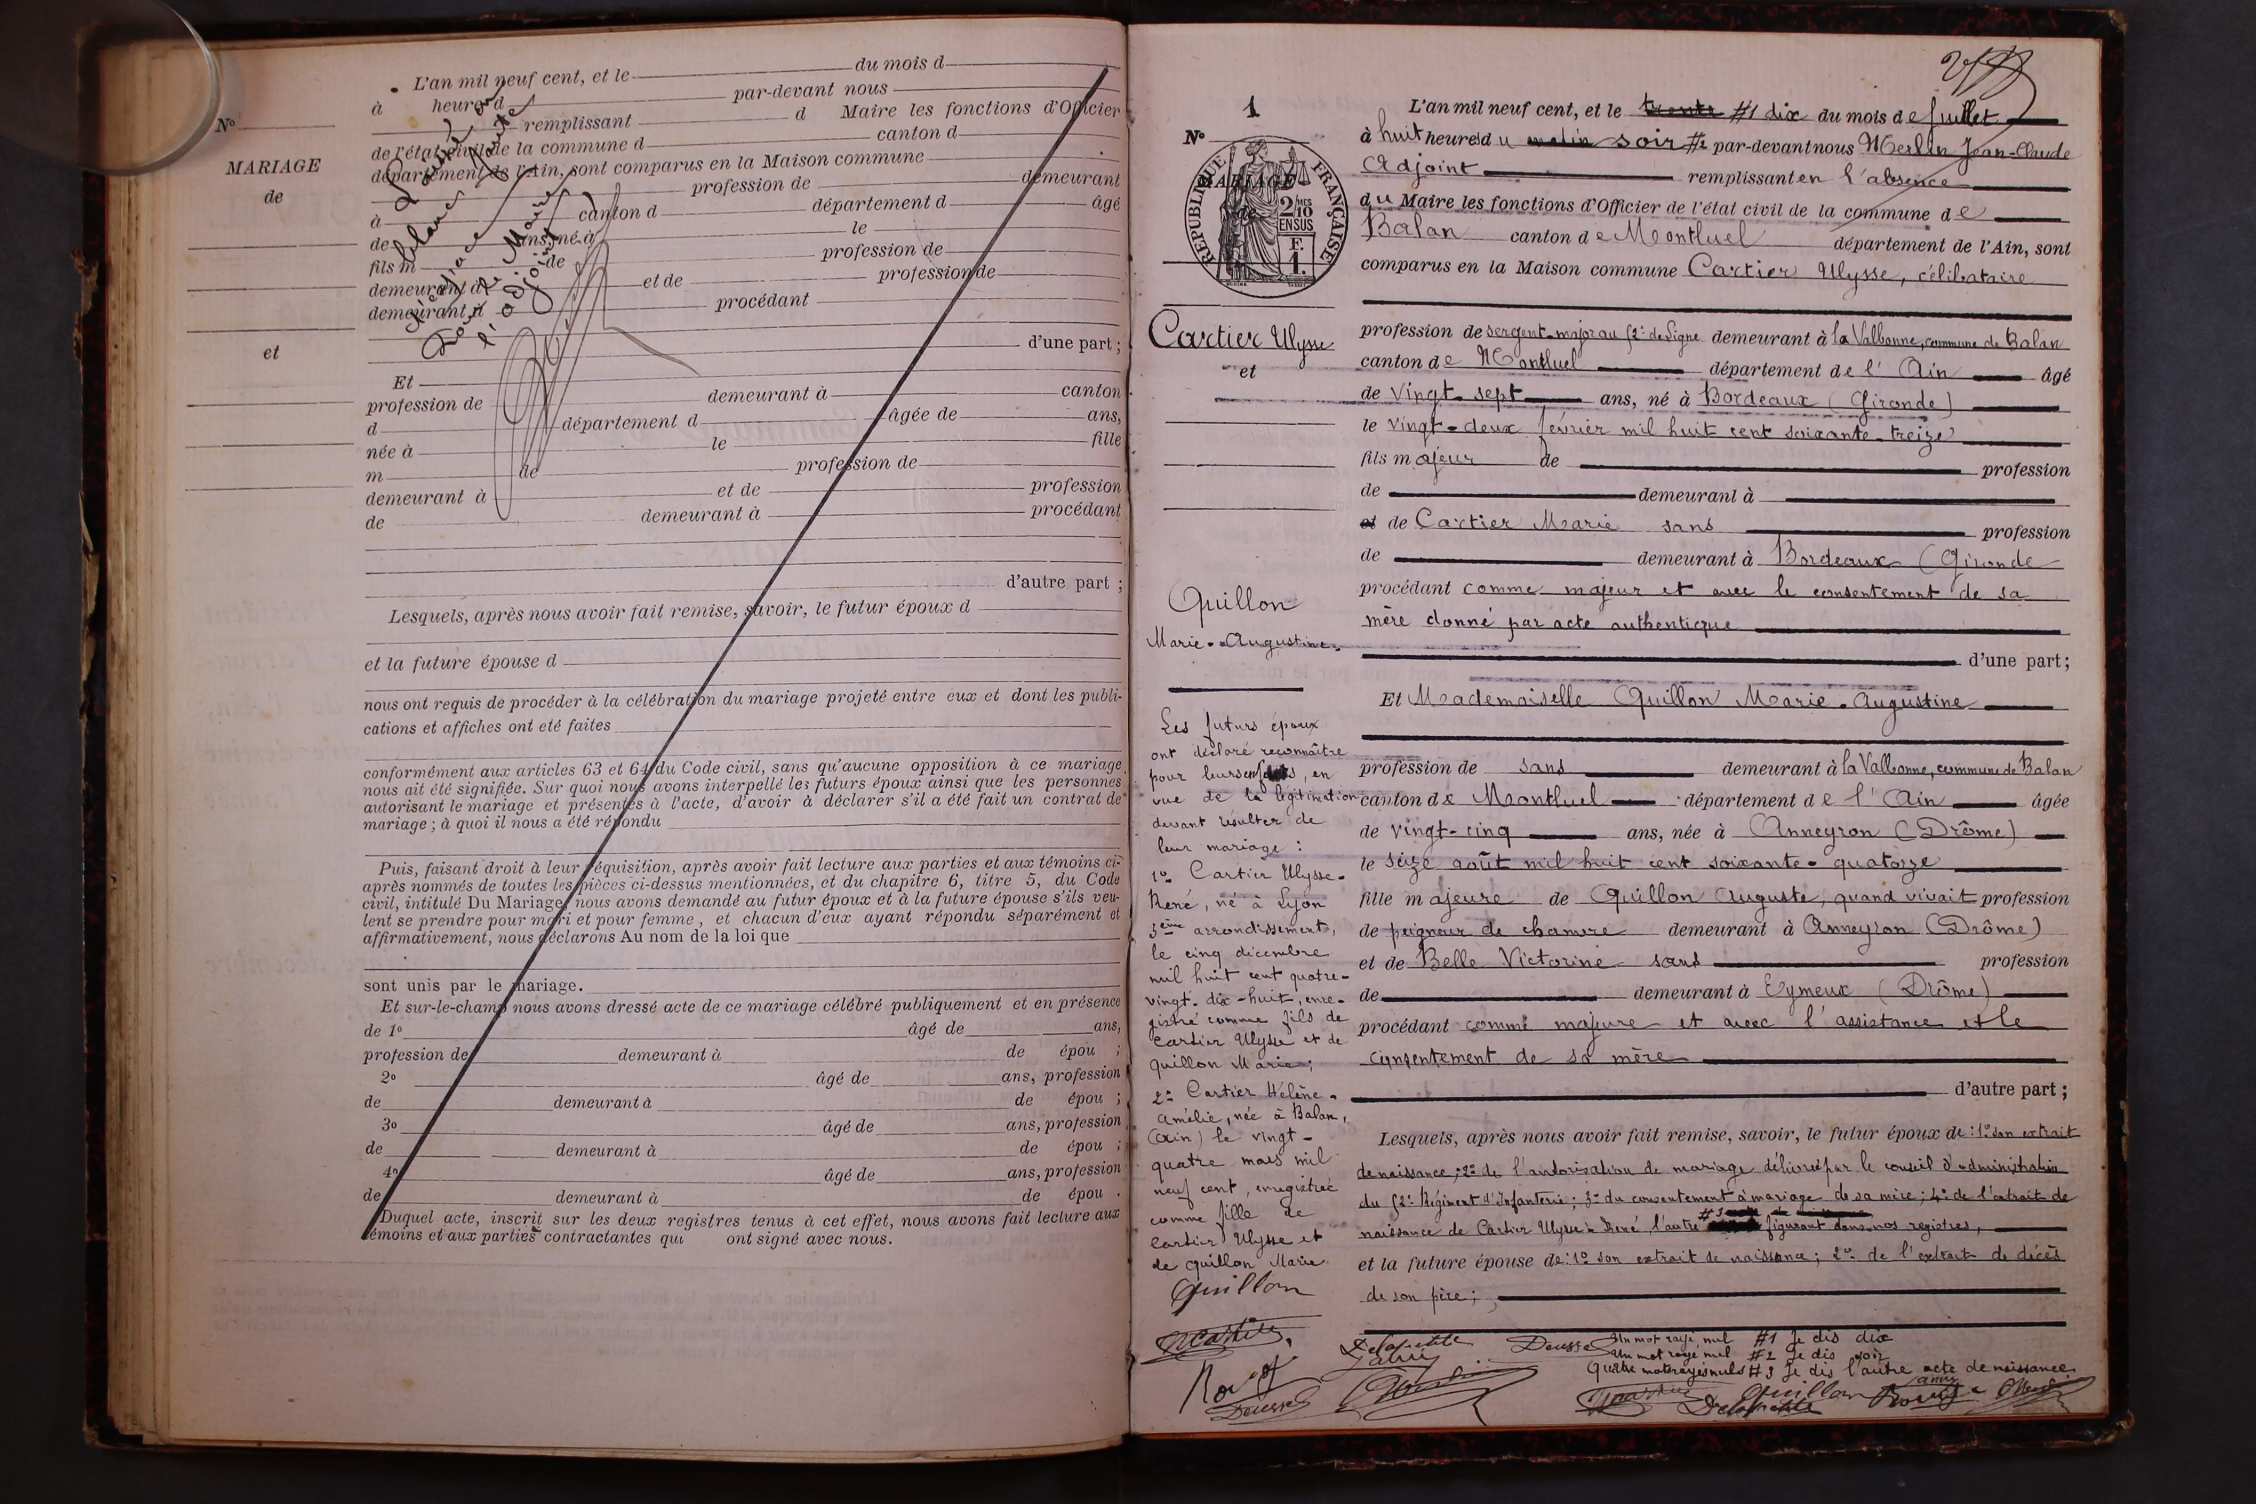 L'an mil neuf cent, et le du mois d
à heure d par-devant nous
remplissant d Maire les fonctions d'Officier
de l'état civil de la commune d canton d
département de l'Ain, sont comparus en la Maison commune
profession de demeurant
à canton d département d âgé
de ans, né à le
fils m de profession de
demeurant à et de profession de
demeurant à procédant
d'une part ;
Et
profession de demeurant à canton
d département d âgée de ans,
née à le fille
m de profession de
demeurant à et de profession
de demeurant à procédant
d'autre part ;
Lesquels, après nous avoir fait remise, savoir, le futur époux d
et la future épouse d
nous ont requis de procéder à la célébration du mariage projeté entre eux et dont les publi-
cations et affiches ont eté faites
conformément aux articles 63 et 64 du Code civil, sans qu'aucune opposition à ce mariage
nous ait été signifiée. Sur quoi nous avons interpellé les futurs époux ainsi que les personnes
autorisant le mariage et présentes à l'acte, d'avoir à déclarer s'il a été fait un contrat de
mariage ; à quoi il nous a été répondu
Puis, faisant droit à leur réquisition, après avoir fait lecture aux parties et aux témoins ci-
après nommés de toutes les pièces ci-dessus mentionnées, et du chapitre 6, titre 5, du Code
civil, intitulé Du Mariage, nous avons demandé au futur époux et à la future épouse s'ils veu-
lent se prendre pour mari et pour femme, et chacun d'eux ayant répondu séparément et
affirmativement, nous déclarons Au nom de la loi que
sont unis par le mariage.
Et sur-le-champ nous avons dressé acte de ce mariage célébré publiquement et en présence
de 1º âgé de ans,
profession de demeurant à de épou ;
2º âgé de ans, profession
de demeurant à de épou ;
3º âgé de ans, profession
de demeurant à de épou ;
4º âgé de ans, profession
de demeurant à de épou .
Duquel acte, inscrit sur les deux registres tenus à cet effet, nous avons fait lecture aux
témoins et aux parties contractantes qui ont signé avec nous.
Nº
MARIAGE
de
et
Pour le Maire
l'adjoint
1
Nº
RÉPUBLIQUE FRANÇAISE
MARIAGE
de
2/10 EN SUS
F.
1.
Cartier Ulysse
et
Quillon
Marie-Augustine.
Les futurs époux
ont déclaré reconnaître
pour leurs enfants, en
vue de la légitimation
devant résulter de
leur mariage :
1º Cartier Ulysse-
René, né à Lyon
3ème arrondissement,
le cinq décembre
mil huit cent quatre-
vingt-dix-huit, enre-
gistré comme fils de
Cartier Ulysse et de
Quillon Marie ;
2º Cartier Hélène-
Amélie, née à Balan,
(Ain) le vingt-
quatre mars mil
neuf cent, enregistrée
comme fille de
Cartier Ulysse et
de Quillon Marie
Quillon
L'an mil neuf cent, et le trente #1 dix du mois de Juillet
à huit heures du matin soir #2 par-devant nous Merlin Jean-Claude
Adjoint remplissant en l'absence
du Maire les fonctions d'Officier de l'état civil de la commune de
Balan canton de Montluel département de l'Ain, sont
comparus en la Maison commune Cartier Ulysse, célibataire
profession de sergent-major au 52e de Ligne demeurant à la Valbonne, commune de Balan
canton de Montluel département de l'Ain âgé
de vingt-sept ans, né à Bordeaux (Gironde)
le vingt-deux février mil huit cent soixante-treize
fils majeur de profession
de demeurant à
et de Cartier Marie sans profession
de demeurant à Bordeaux (Gironde
procédant comme majeur et avec le consentement de sa
mère donné par acte authentique
d'une part ;
Et Mademoiselle Quillon Marie-Augustine
profession de sans demeurant à la Valbonne, commune de Balan
canton de Montluel département de l'Ain âgée
de vingt-cinq ans, née à Anneyron (Drôme)
le seize août mil huit cent soixante-quatorze
fille majeure de Quillon Auguste, quand vivait profession
de peigneur de chanvre demeurant à Anneyron (Drôme)
et de Belle Victorine sans profession
de demeurant à Eymeux (Drôme)
procédant comme majure et avec l'assistance et le
consentement de sa mère
d'autre part ;
Lesquels, après nous avoir fait remise, savoir, le futur époux de : 1º son extrait
de naissance ; 2º de l'autorisation de mariage délivrée par le conseil d'administration
du 52e Régiment d'Infanterie ; 3º du consentement à mariage de sa mère ; 4º de l'extrait de
naissance de Cartier Ulysse-René, l'autre #3 figurant dans nos registres,
et la future épouse de : 1º son extrait de naissance ; 2º de l'extrait de décès
de son père ;
Delapetite Dousse Un mot rayé nul #1 Je dis dix
Un mot rayé nul #2 Je dis soir
Quatre mots rayés nuls #3 Je dis l'autre acte de naissance
Dousse Delapetite Quillon